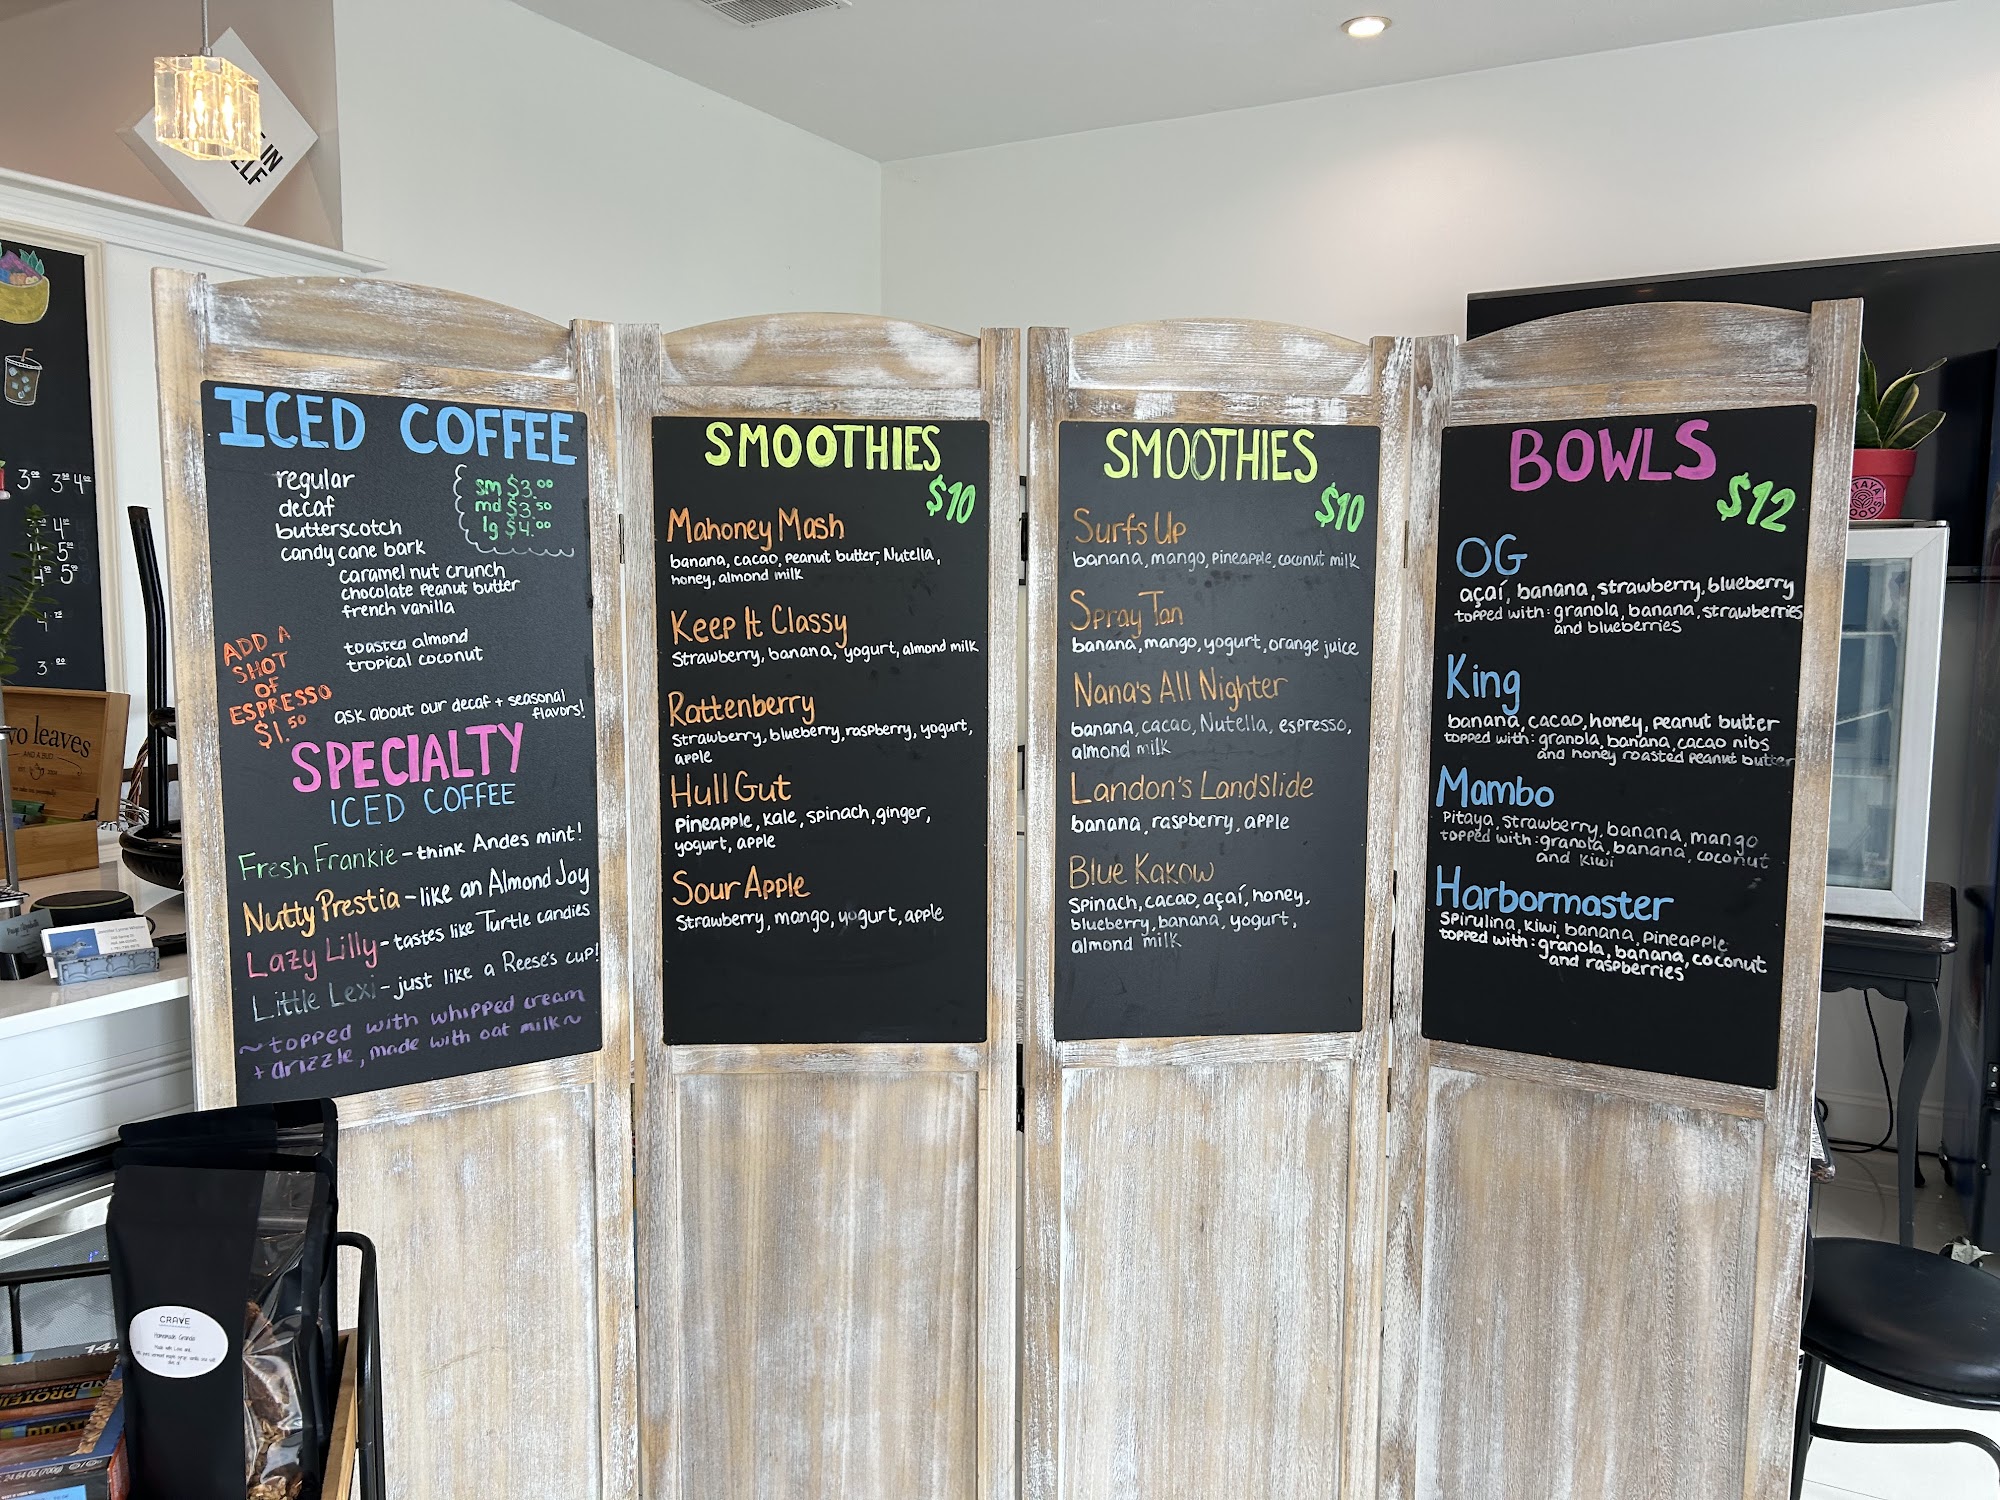 IN
ELF
3.00 3.50 4.00
4.00
5.00
5.00
3.00
two leaves
AND A BUD
ICED COFFEE
regular
decaf
butterscotch
candy cane bark
caramel nut crunch
chocolate peanut butter
french vanilla
toasted almond
tropical coconut
sm $3.00
md $3.50
lg $4.00
ADD A
SHOT
OF
ESPRESSO
$1.50
ask about our decaf + seasonal
flavors!
SPECIALTY
ICED COFFEE
Fresh Frankie - think Andes mint!
Nutty Prestia - like an Almond Joy
Lazy Lilly - tastes like Turtle candies
Little Lexi - just like a Reese's cup!
~topped with whipped cream
+ drizzle, made with oat milk~
SMOOTHIES
$10
Mahoney Mash
banana, cacao, peanut butter, Nutella,
honey, almond milk
Keep It Classy
Strawberry, banana, yogurt, almond milk
Rattenberry
Strawberry, blueberry, raspberry, yogurt,
apple
Hull Gut
Pineapple, kale, spinach, ginger,
yogurt, apple
Sour Apple
Strawberry, mango, yogurt, apple
SMOOTHIES
$10
Surfs Up
banana, mango, pineapple, coconut milk
Spray Tan
banana, mango, yogurt, orange juice
Nana's All Nighter
banana, cacao, Nutella, espresso,
almond milk
Landon's Landslide
banana, raspberry, apple
Blue Kakow
Spinach, cacao, açaí, honey,
blueberry, banana, yogurt,
almond milk
BOWLS
$12
OG
açaí, banana, strawberry, blueberry
topped with: granola, banana, strawberries
and blueberries
King
banana, cacao, honey, peanut butter
topped with: granola, banana, cacao nibs
and honey roasted peanut butter
Mambo
Pitaya, strawberry, banana, mango
topped with: granola, banana, coconut
and kiwi
Harbormaster
Spirulina, kiwi, banana, pineapple
topped with: granola, banana, coconut
and raspberries
CRAVE
Homemade Granola